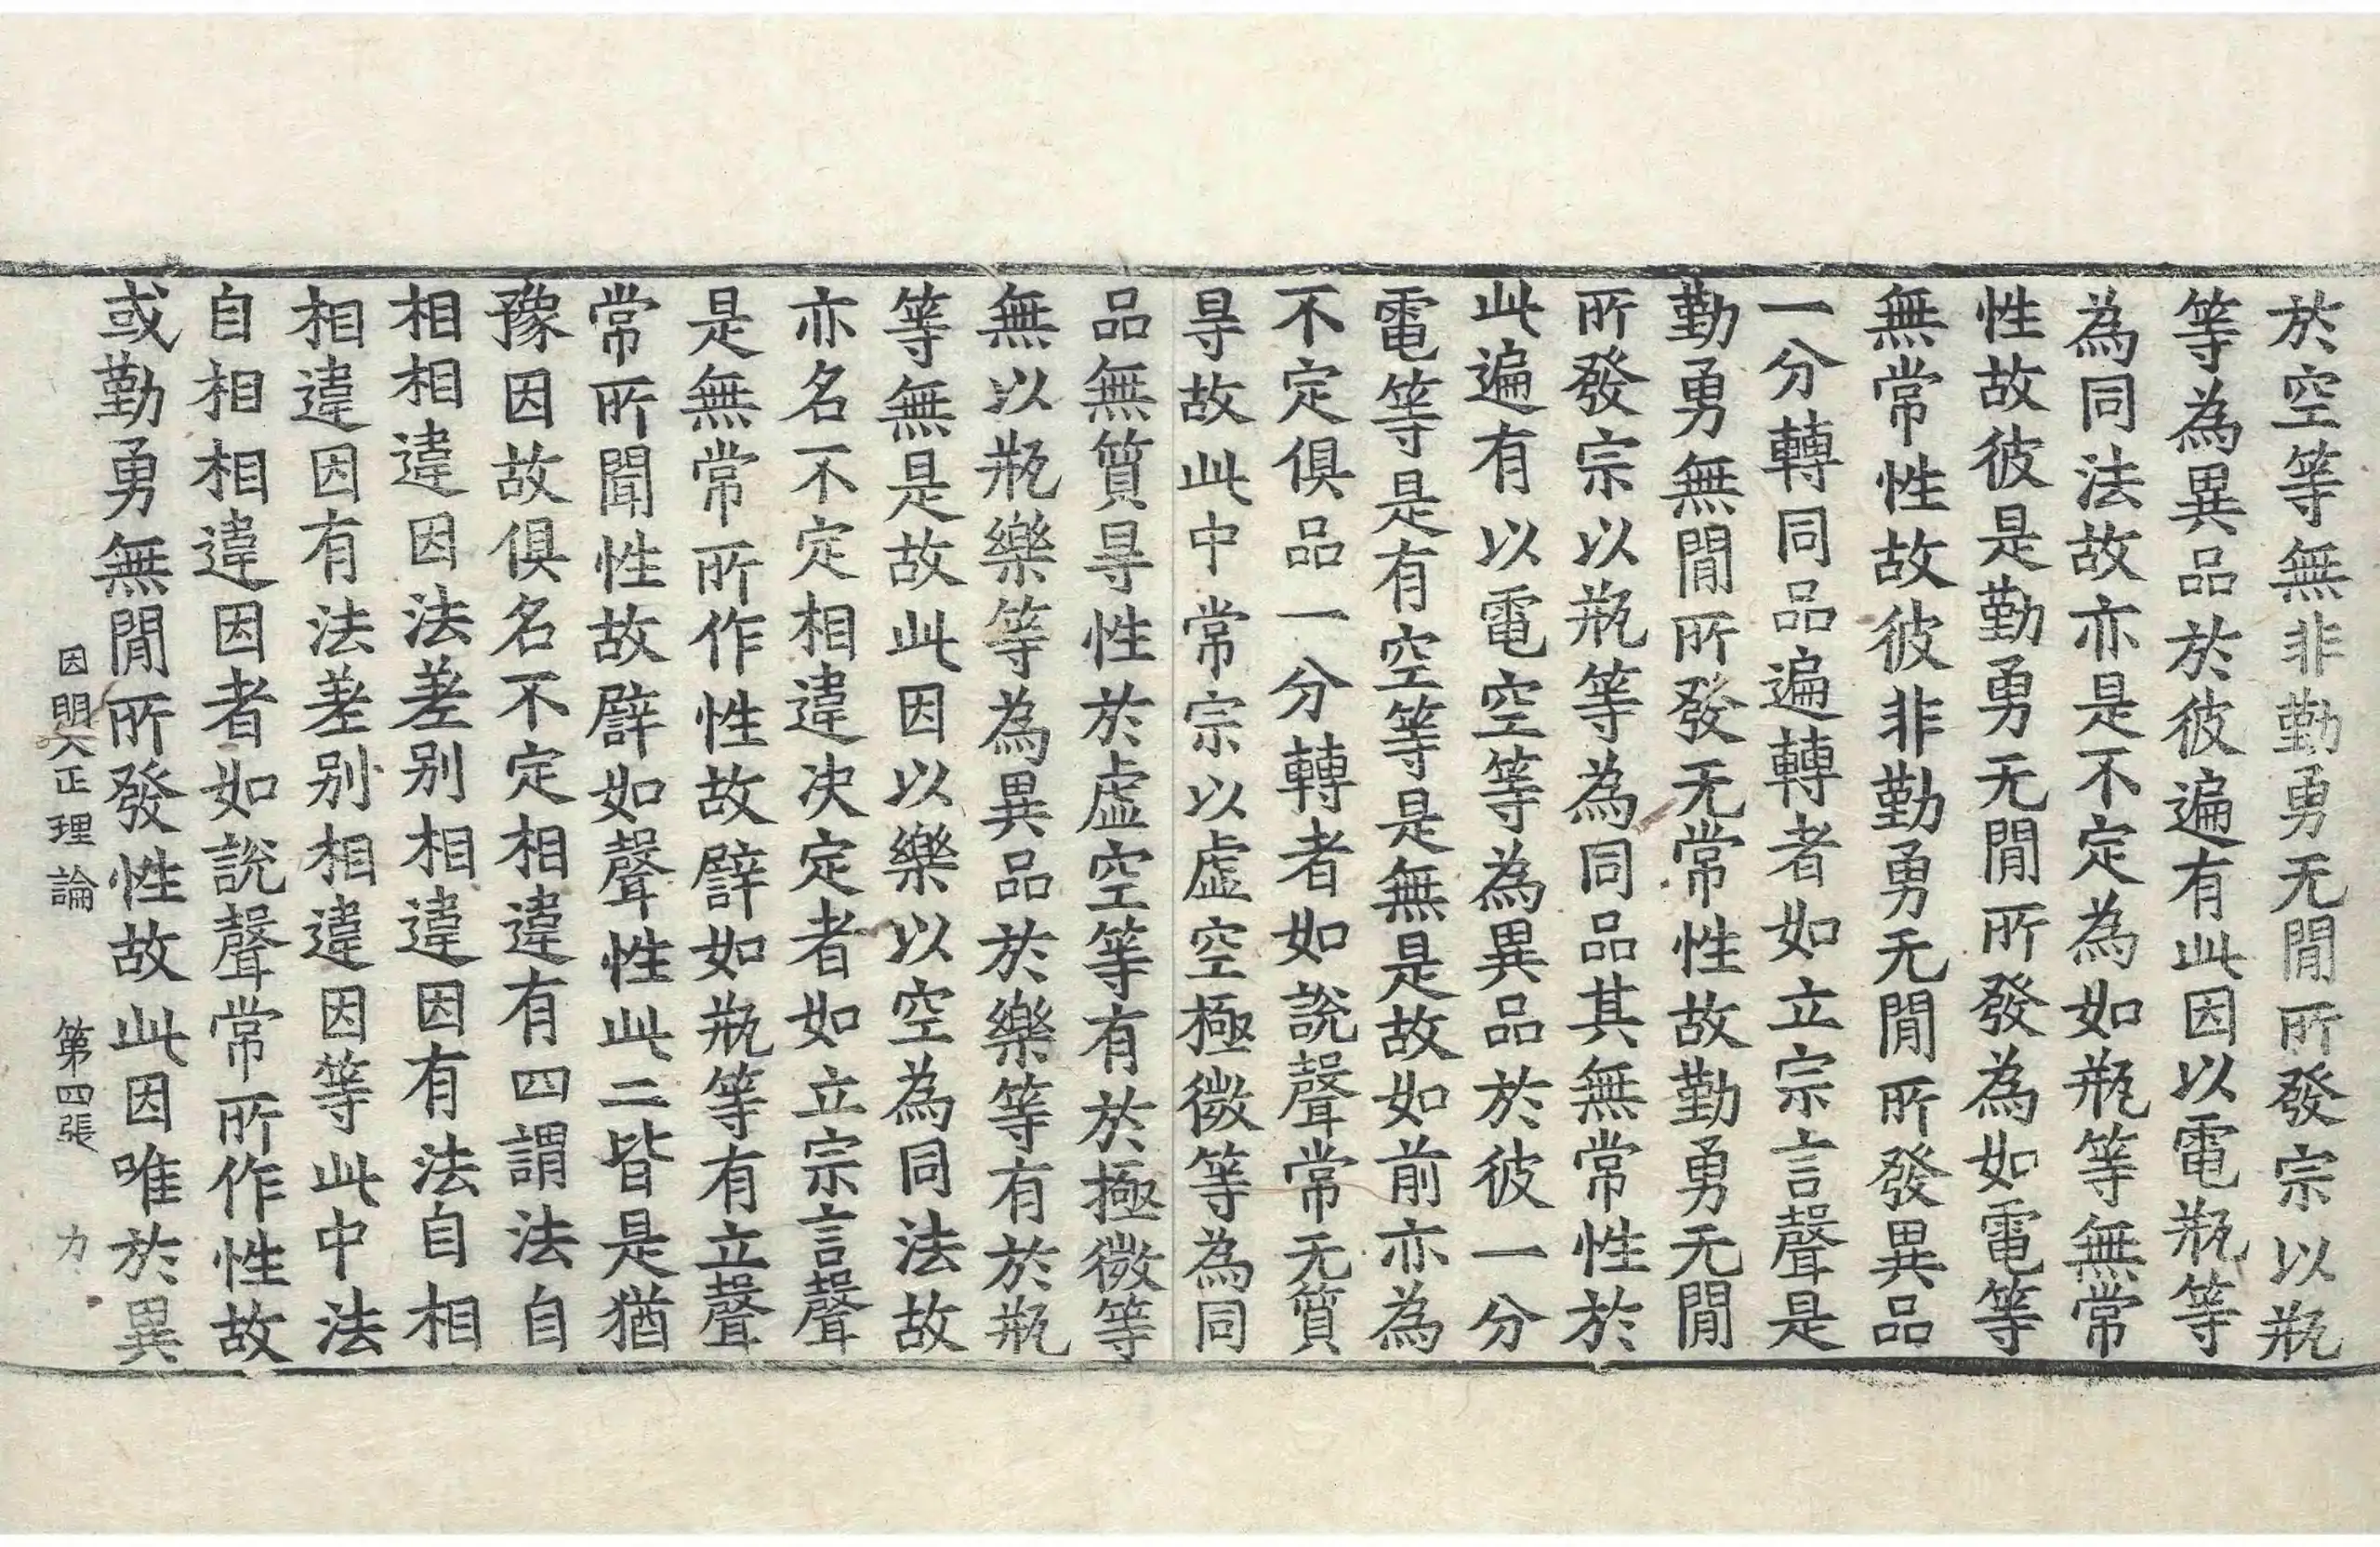 於空等無非勤勇无閒所發宗以瓶
等為異品於彼遍有此因以電瓶等
為同法故亦是不定為如瓶等無常
性故彼是勤勇无閒所發為如電等
無常性故彼非勤勇无閒所發異品
一分轉同品遍轉者如立宗言聲是
勤勇無閒所發无常性故勤勇无閒
所發宗以瓶等為同品其無常性於
此遍有以電空等為異品於彼一分
電等是有空等是無是故如前亦為
不定俱品一分轉者如說聲常无質
㝵故此中常宗以虛空極微等為同
品無質㝵性於虛空等有於極微等
無以瓶樂等為異品於樂等有於瓶
等無是故此因以樂以空為同法故
亦名不定相違决定者如立宗言聲
是無常所作性故譬如瓶等有立聲
常所聞性故譬如聲性此二皆是猶
豫因故俱名不定相違有四謂法自
相相違因法差别相違因有法自相
相違因有法差别相違因等此中法
自相相違因者如說聲常所作性故
或勤勇無閒所發性故此因唯於異
因明入正理論 第四張 力